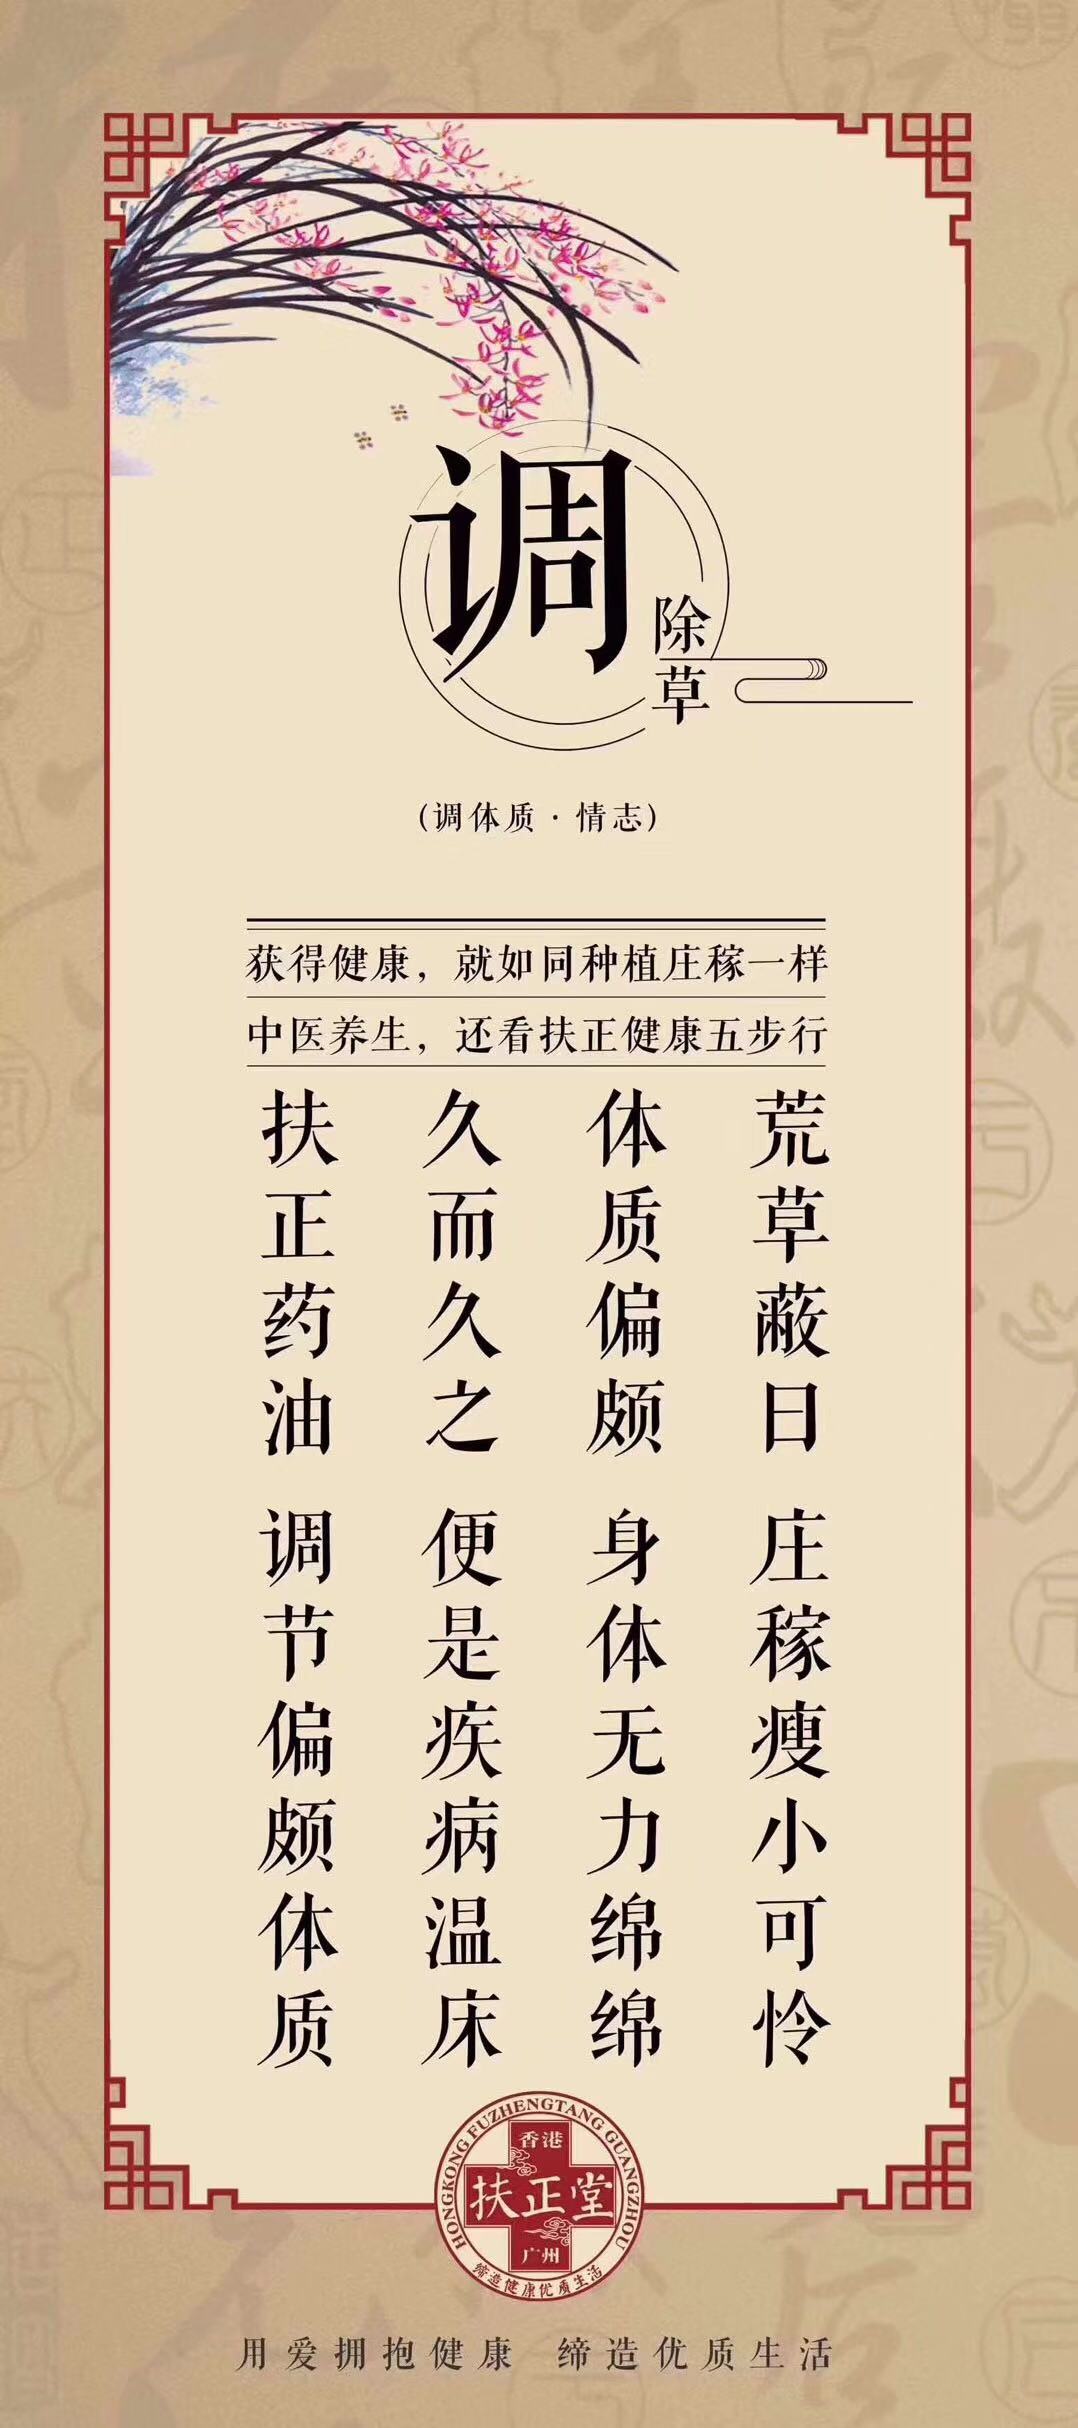 调
除草
(调体质·情志)
获得健康，就如同种植庄稼一样
中医养生，还看扶正健康五步行
荒草蔽日 庄稼瘦小可怜
体质偏颇 身体无力绵绵
久而久之 便是疾病温床
扶正药油 调节偏颇体质
HONGKONG FUZHENGTANG GUANGZHOU
香港
扶正堂
广州
缔造健康优质生活
用爱拥抱健康 缔造优质生活